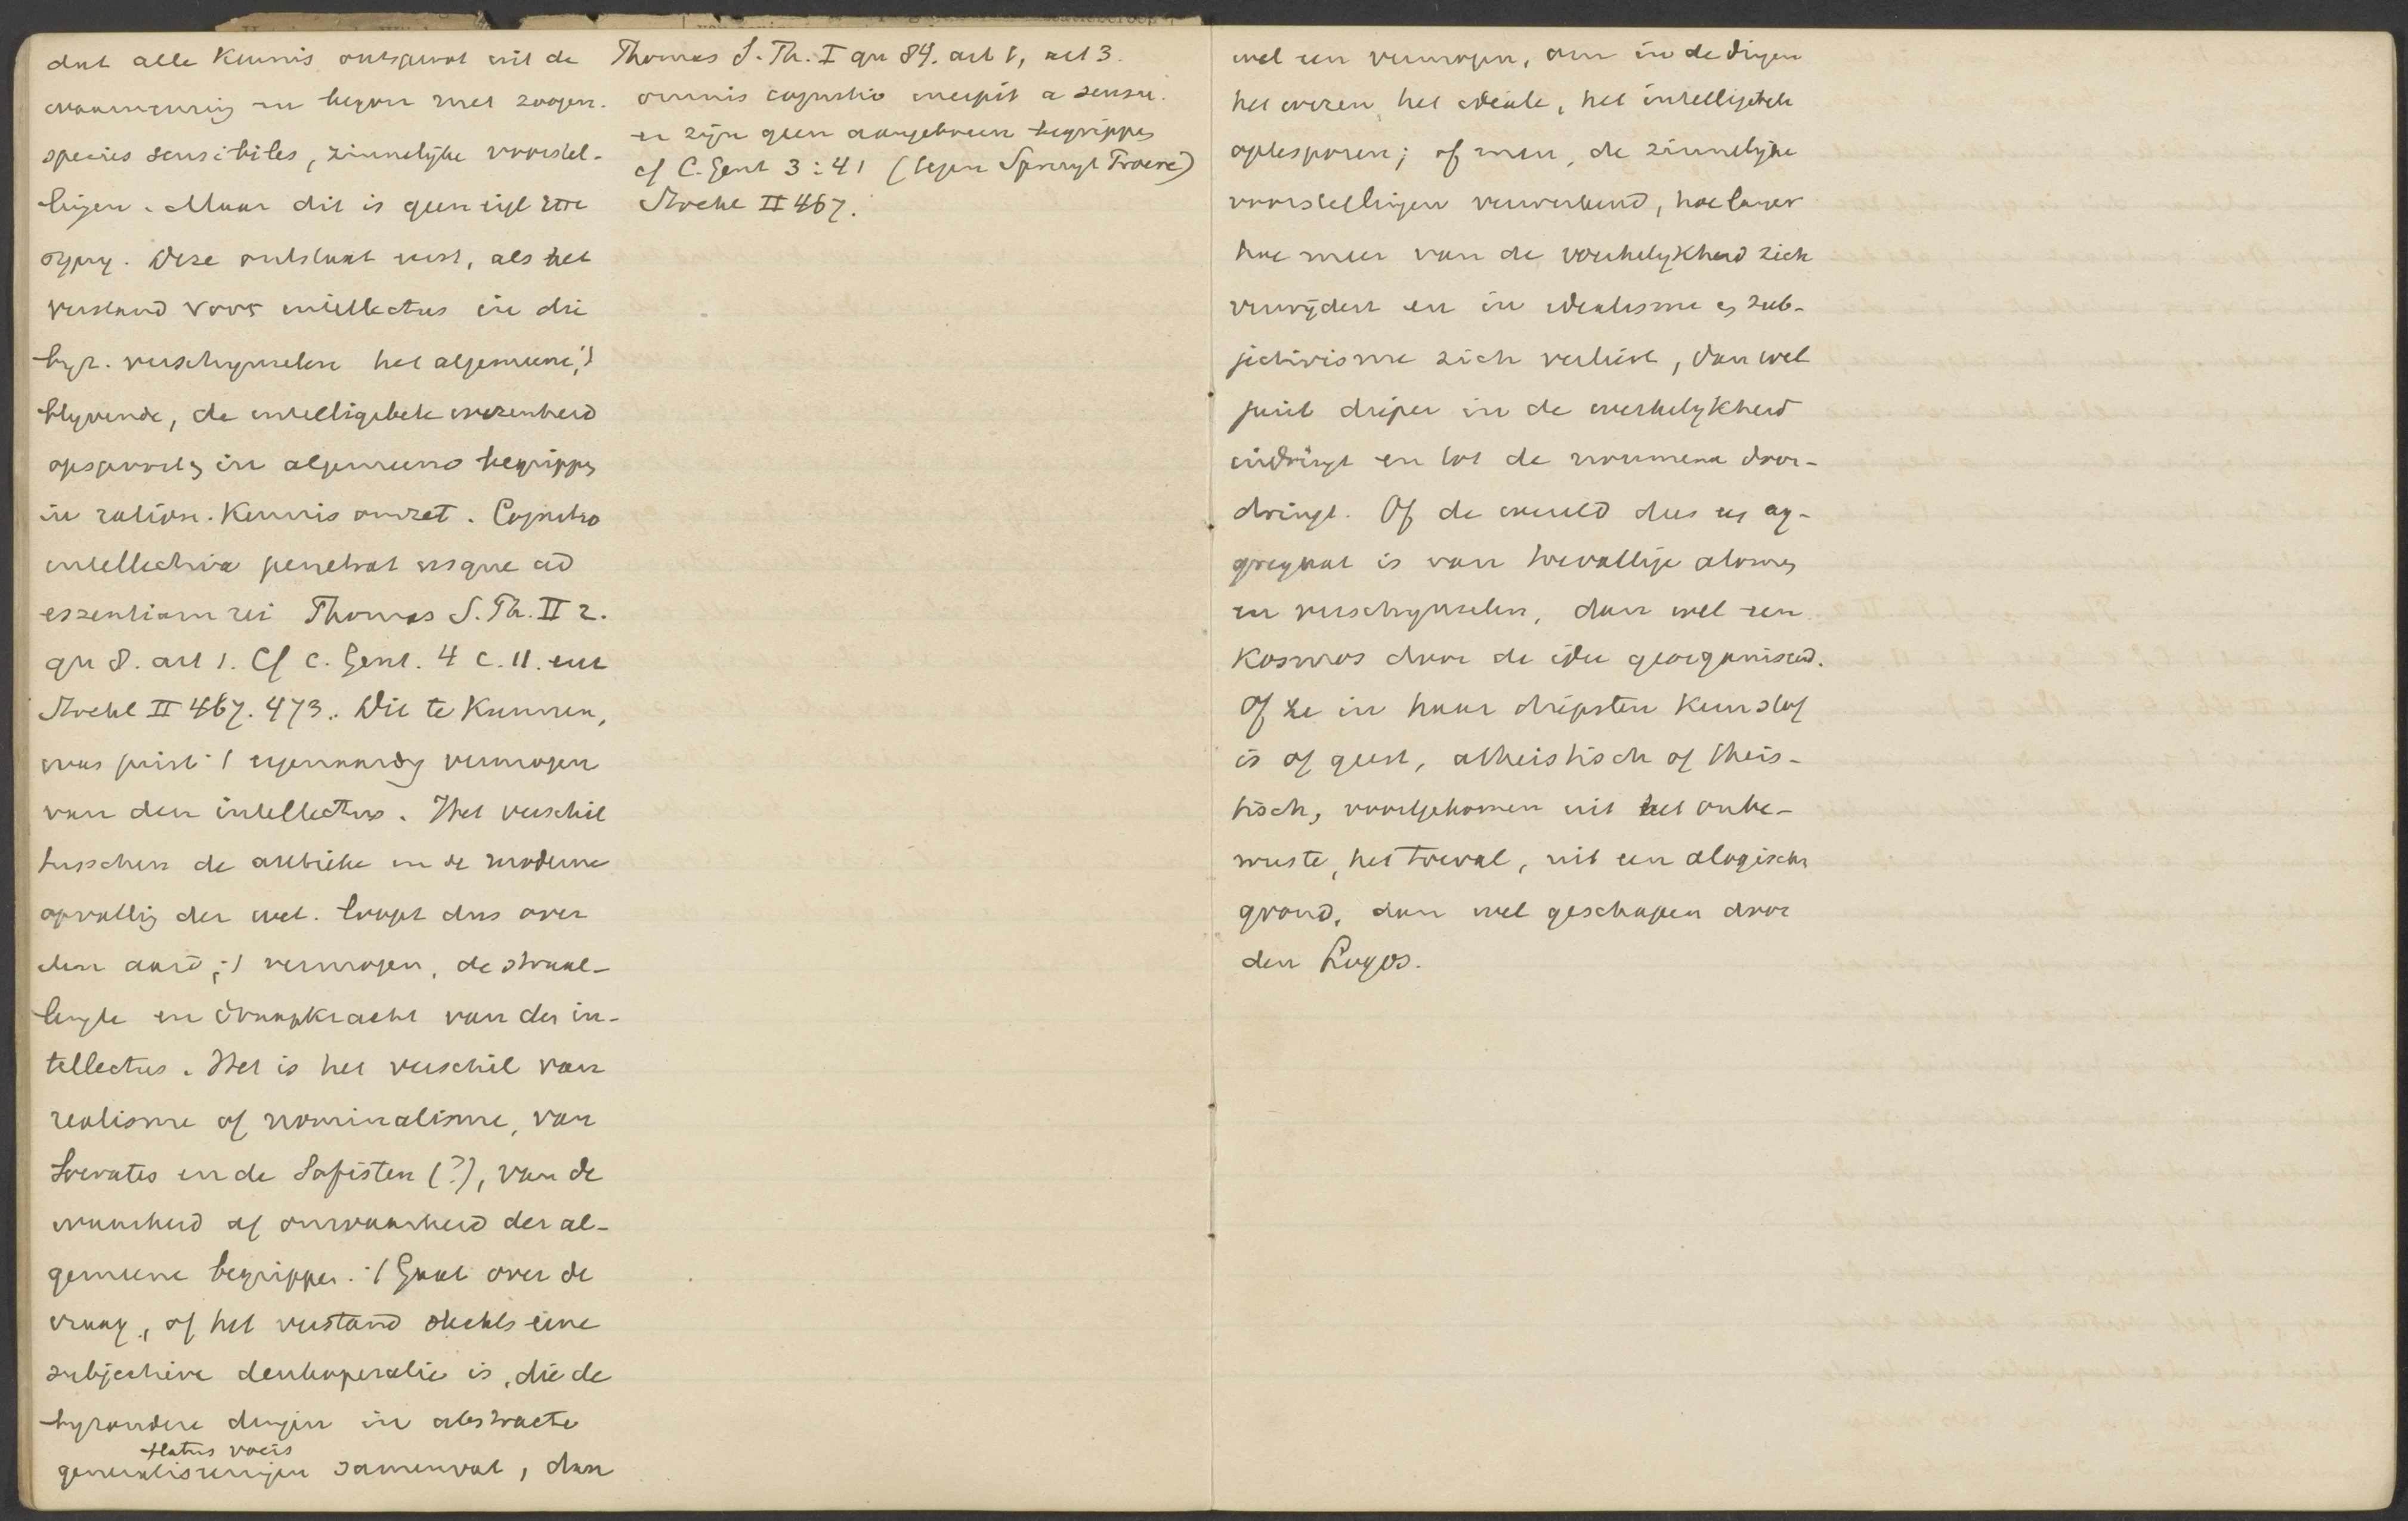 dat alle kennis ontspruit uit de
waarneming en begon met zoogen.
species sensibiles, zinnelijke voorstel-
lingen. Maar dit is geen eigl
Deze ontstaat eerst, als het
verstand voor intellectus in die
byz. verschynselen het algemeene,
blyvende, de intelligibele wezenheid
opspoort en in algemeene begrippen
in ration. kennis omzet. Cognitio
intellectiva penetrat usque ad
essentiam rei Thomas S. Th. II 2.
qu 8. art 1. Cf c. Gent. 4 c. 11. en
Stockl II 467. 473. Dit te kunnen,
was juist 't eigenaardig vermogen
van den intellectus. Het verschil
tusschen de antieke en de moderne
opvatting der wet. loopt dus over
den aard, 't vermogen, de straal-
lengte en draagkracht van den in-
tellectus. Het is het verschil van
realisme of nominalisme, van
Socrates en de Sofisten (?), van de
waarheid of onwaarheid der al-
gemeene begrippen. 't Gaat over de
vraag, of het verstand slechts eene
subjectieve denkoperatie is, die de
byzondere dingen in abstracte
flatus vocis
generaliseringen samenvat, dan
Thomas S. Th. I qu 84. art 1, art 3.
omnis cognitio incipit a sensu.
er zijn geen aangeboren begrippen
cf C. Gent 3:41 (tegen Spruyt Proeve)
Stockl II 467.
wel een vermogen, om in de dingen
het wezen, het ideale, het intelligibele
optesporen; of men, de zinnelyke
voorstellingen verwerkend, hoe langer
hoe meer van de werkelykheid zich
verwijdert en in idealisme en sub-
jectivisme zich verliest, dan wel
juist dieper in de werkelykheid
indringt en tot de noumena door-
dringt. Of de wereld dus een ag-
gregaat is van toevallige atomen
en verschynselen, dan wel een
kosmos door de idee georganiseerd.
Of ze in haar diepsten kern stof
is of geest, atheistisch of theis-
tisch, voortgekomen uit het onbe-
wuste, het toeval, uit een alogischen
grond, dan wel geschapen door
den Logos.